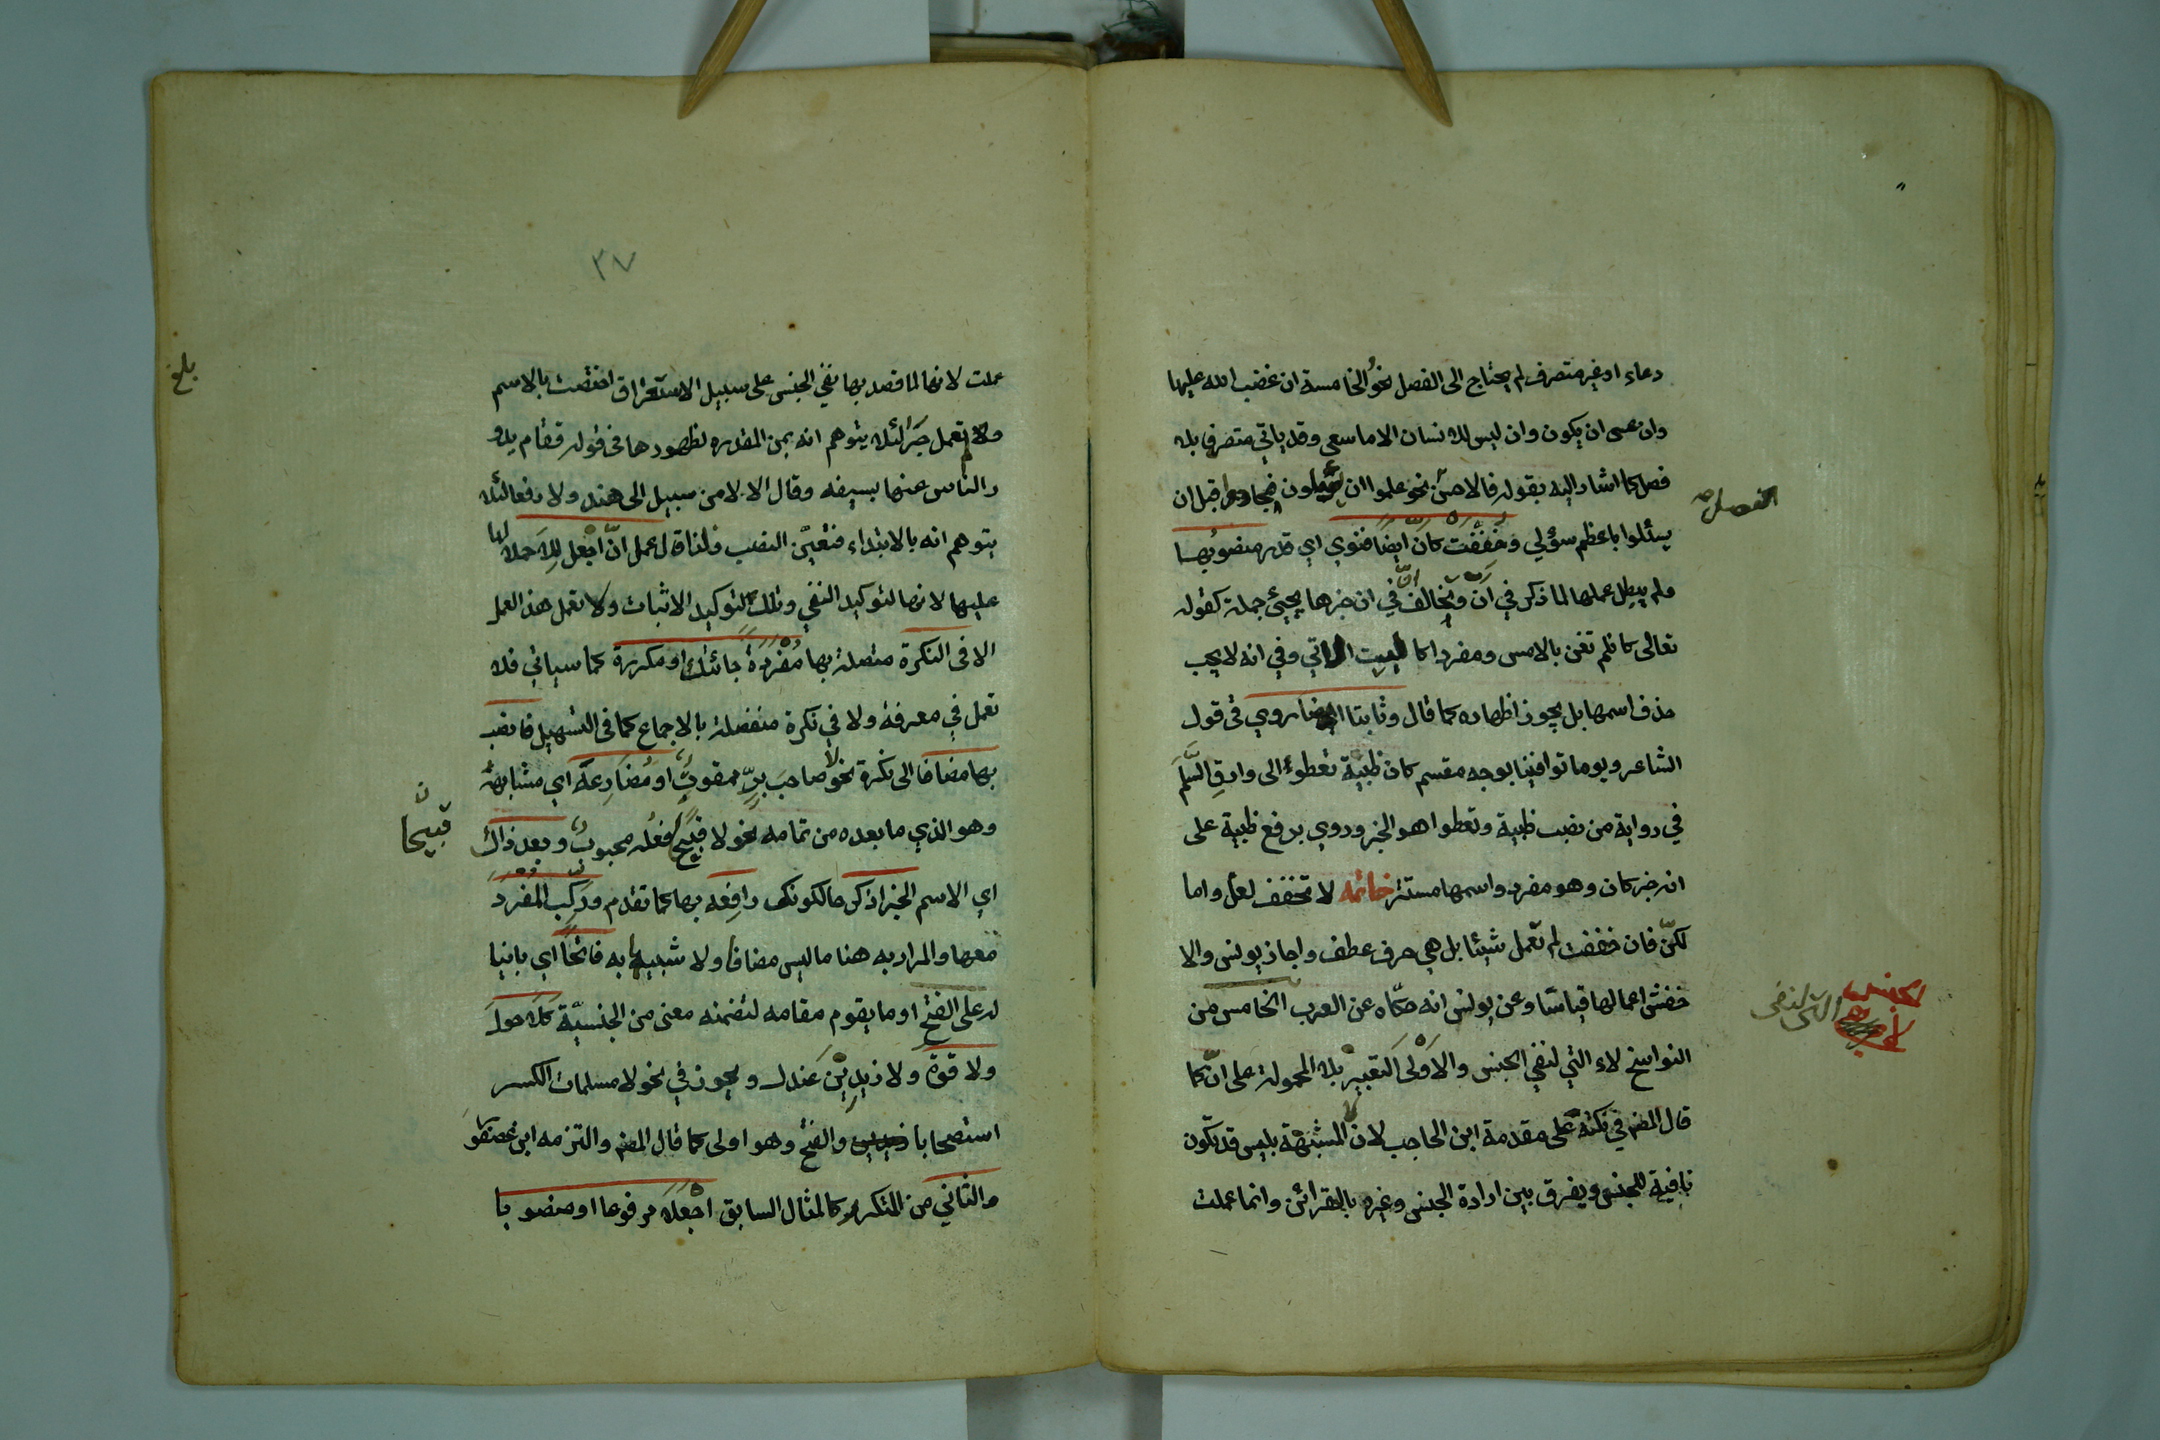 دعاء او غير متصرف لم يحتاج الى الفصل نحو الخامسة ان غضب الله عليها
وان عسى ان يكون وان ليس للانسان الا ما سعى وقد ياتي متصرفا بلا
فصل كما اشار اليه بقوله فالاحسن نحو علموا ان يؤملون فجادوا قبل ان
يسئلوا باعظم سؤلي وخففت كان ايضا فنوي اي قدر منصوبها
ولم يبطل عملها لما ذكر في ان وتخالف ان في ان خبرها يجيئ جملة كقوله
تعالى كان لم تغن بالامس ومفردا كالبيت الاتي وفي انه لا يجب
حذف اسمها بل يجوز اظهاره كما قال وثابتا ايضا روي في قول
الشاعر ويوما توافينا بوجه مقسم كان ظبية تعطوء الى وارق السَّلَم
في رواية من نصب ظبية وتعطوا هو الخبر وروي برفع ظبية على
انه خبر كان وهو مفرد واسمها مستتر خاتمه لا تخفف لعل واما
لكنّ فان خففت لم تعمل شيئا بل هي حرف عطف واجاز يونس والا
خفش اعمالها قياسا وعن يونس انه حكاه عن العرب الخامس من
النواسخ لاء التي لنفي الجنس والاولى التعبير بلا المحمولة على انّ كما
قال المص في نكته على مقدمة ابن الحاجب لان لا المشبهة بليس قد تكون
نافية للجنس ويفرق بين ارادة الجنس وغيره بالقرائن وانما عملت
التي لنفي
لا
الجنس
٣٧
بلغ
عملت لانها لما قصد بها نفي الجنس على سبيل الاستغراق اختصت بالاسم
ولا تعمل جرّا لئلا يتوهم انه بمن المقدره لظهورها في قوله فقام يذو
د الناس عنها بسيفه وقال الا لا من سبيل الى هند ولا رفعا لئلا
يتوهم انه بالابتداء فتعيّن النصب ولذا قال عمل انّ اجعل لِلاَ حملا لها
عليها لانها لتوكيد النفي وتلك لتوكيد الاثبات ولا تعمل هذا العمل
الا في النكرة متصلة بها مُفْرَدَةً جائتك او مكررة كما سياتي فلا
تعمل في معرفة ولا في نكرة منفصلة بالاجماع كما في التسهيل فانصب
بها مضافا الى نكرة نحو لا صاحبَ برّ ممقوتٌ او مُضَارِعَهْ اي مشابهه
وهو الذي ما بعده من تمامه نحو لا قبيحا فعله محبوبٌ وبعد ذاك
قبيحًا
اي الاسم الخبر اذكر حالكونك رافِعهْ بها كما تقدم وركّب المفرد
معها والمراد به هنا ما ليس مضافا ولا شبيها به فاتحًا اي بانيا
له على الفتح او ما يقوم مقامه لتضمنه معنى من الجنسيّة كلا حولَ
ولا قوّة ولا زيدينْ عندك ويجوز في نحو لا مسلمات الكسر
استصحابا والفتح وهو اولى كما قال المص والتزمه ابن عصفور
والثاني من المتكرر كالمثال السابق اجْعَلَا مرفوعا او منصوبا